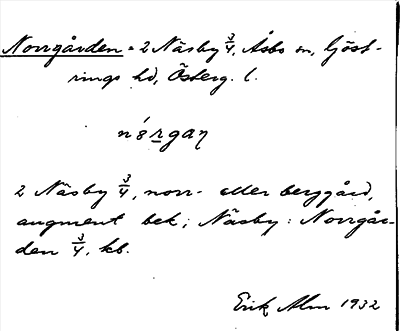 Norrgården = 2 Näsby 3/4, Åsbo sn, Göst-
rings hd, Österg. l.
2 Näsby 3/4, norr- eller berggård,
augment bek; Näsby: Norrgår-
den 3/4, kb.
Erik Alm 1932